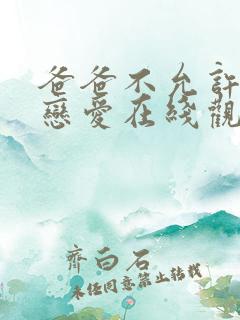 爸爸不允許
戀愛在綫觀
齊白石
未经同意禁止转载